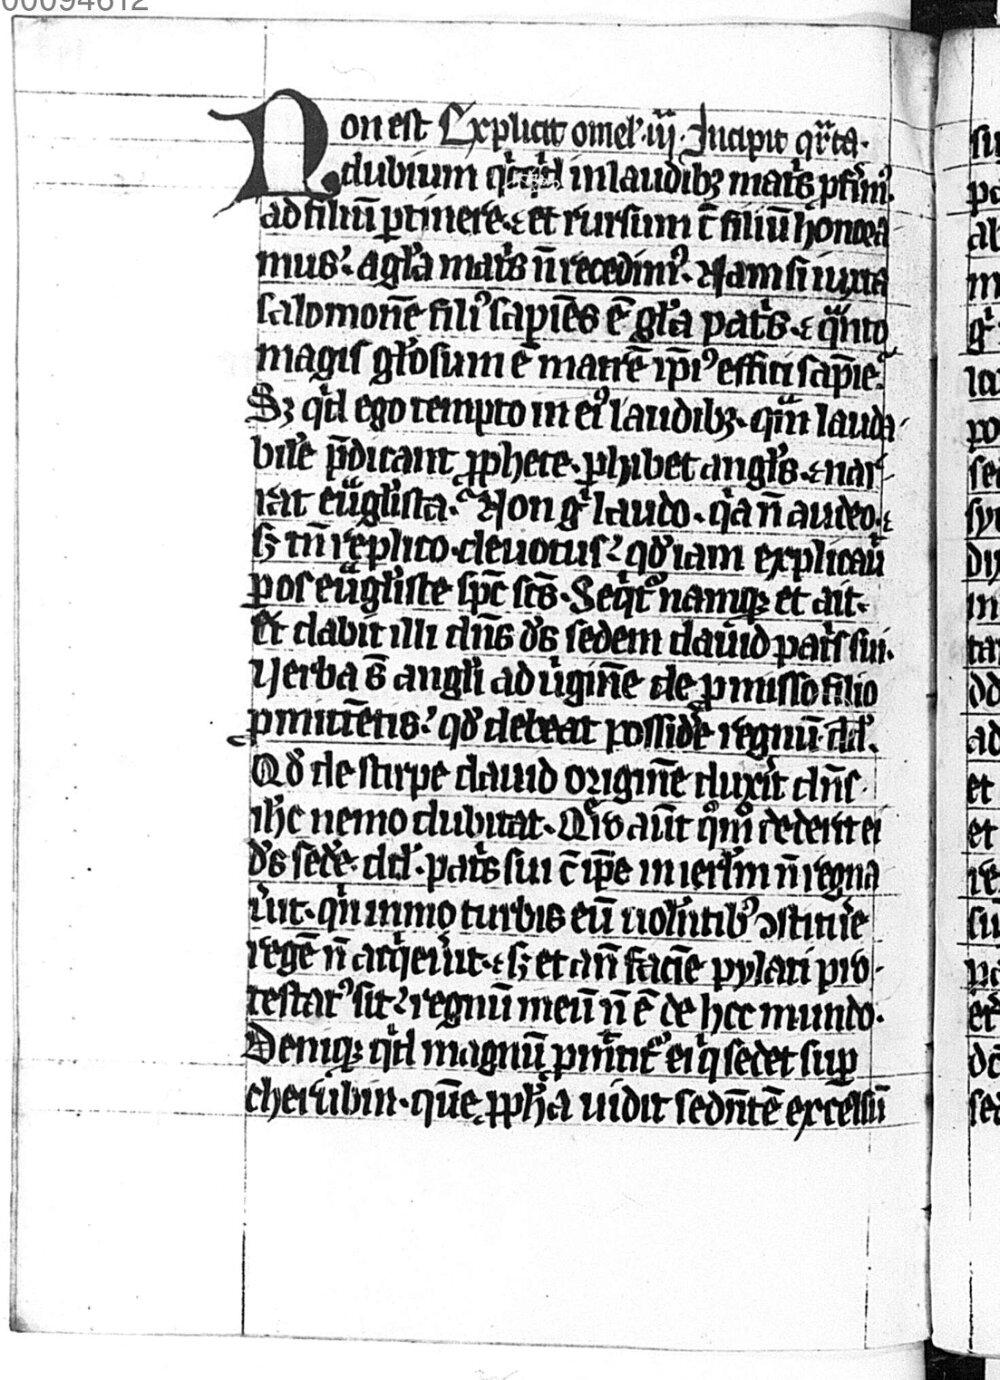 00094612
Non est Explicit omel' iij. Incipit qrta.
dubium qicqid in laudibꝫ matis pferimꝰ
ad filiū ptinere. et rursum cū filiū honora
mus. a gla matis n̄ recedimꝰ. Nam si iuxta
salomonē filiꝰ sapiēs ē gla patis. ⁊ qanto
magis glosum ē matrē ipiꝰ effici sapie.
Sꝫ qid ego tempto in eiꝰ laudibꝫ. qam lauda
bile p̄dicant ꝓphete. phibet angl's. ⁊ nar
rat euāglista. Non gͥ laudo. qia n̄ audeo.
sꝫ tn̄ replico deuotus. qd' iam explicauit
p os euāgliste spc̄ scs̄. Seqitꝰ namqꝫ et ait.
Et dabit illi dn̄s ds̄ sedem dauid patis sui.
Verba s̄ angli ad uiginē de pmisso filio
pmittētis. qd' debeat possidē regnū dd'.
Qd' de stirpe dauid originē duxit dn̄s
ih̄c nemo dubitat. Qo aut qomo dederit ei
ds̄ sedē. dd'. patis sui cū ipe in ierlm n̄ regna
uit. qin immo turbis eū uolntibꝰ ꝯstitue
regē n̄ acqieuit. ⁊ sꝫ et an̄ faciē pylati pro
testatꝰ sit. regnū meū n̄ ē de hoc mundo.
Deniqꝫ qid magnū pmittitꝰ ei q sedet sup
cherubin. quē ꝓpha uidit sedn̄tē excelsū